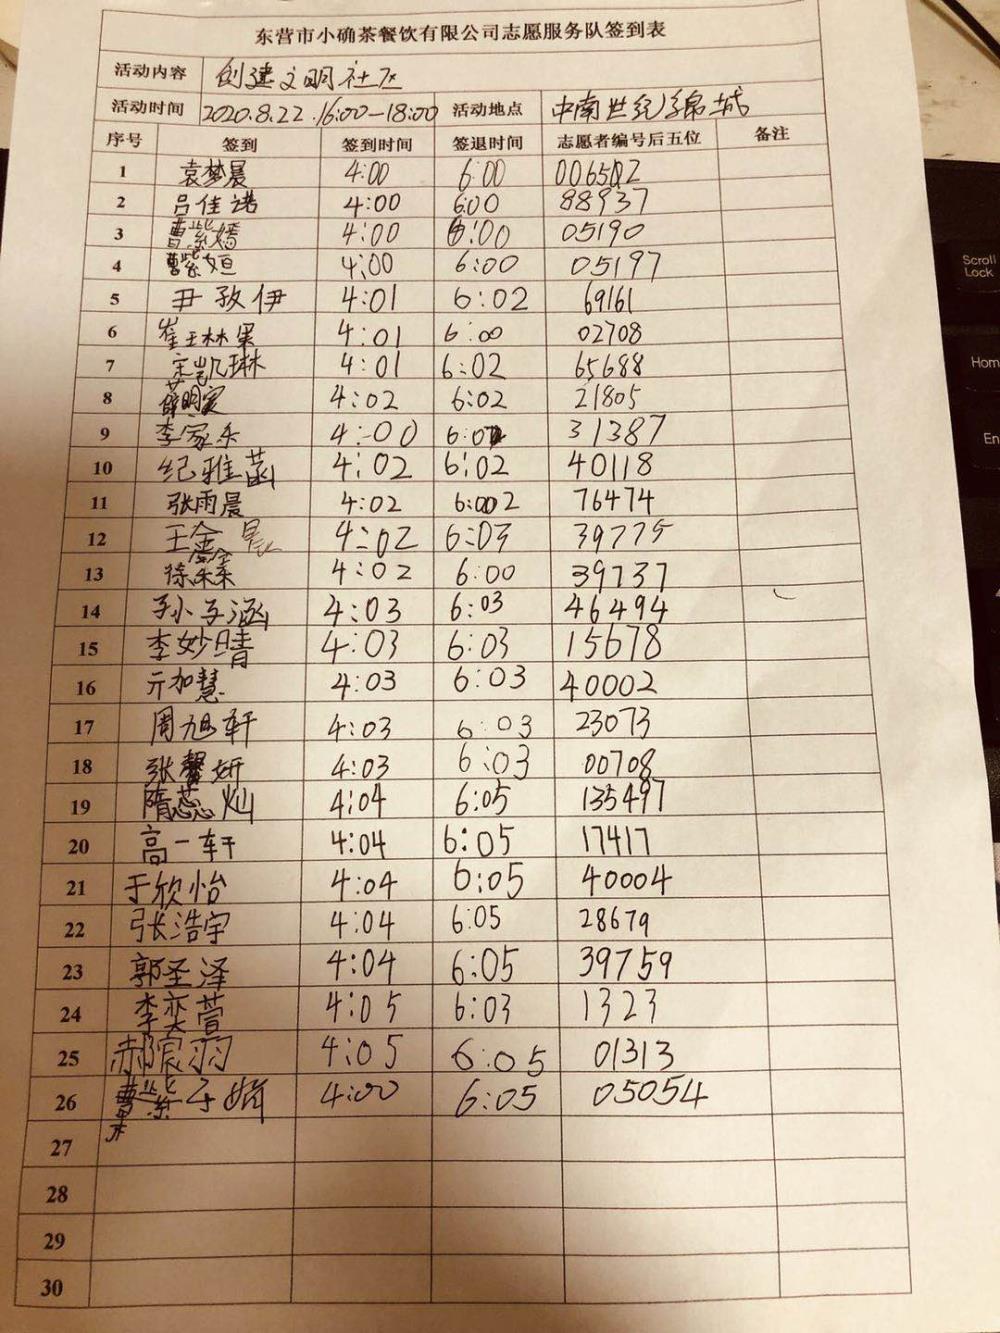 东营市小确茶餐饮有限公司志愿服务队签到表
活动内容 创建文明社区
活动时间 2020.8.22 16:00-18:00 活动地点 中南世纪锦城
序号 签到 签到时间 签退时间 志愿者编号后五位 备注
1 袁梦晨 4:00 6:00 006502
2 吕佳诺 4:00 6:00 88937
3 曹紫嫣 4:00 6:00 05190
4 曹紫姮 4:00 6:00 05197
5 尹孜伊 4:01 6:02 69161
6 崔玉林果 4:01 6:00 02708
7 宋凯琳 4:01 6:02 65688
8 薛明宸 4:02 6:02 21805
9 李家乐 4:00 6:02 31387
10 纪雅菡 4:02 6:02 40118
11 张雨晨 4:02 6:002 76474
12 王金 4:02 6:03 39775
13 徐 4:02 6:00 39737
14 孙子涵 4:03 6:03 46494
15 李妙晴 4:03 6:03 15678
16 亓加慧 4:03 6:03 40002
17 周旭轩 4:03 6:03 23073
18 张馨妍 4:03 6:03 00708
19 隋蕊灿 4:04 6:05 135497
20 高一轩 4:04 6:05 17417
21 于欣怡 4:04 6:05 40004
22 张浩宇 4:04 6:05 28679
23 郭圣泽 4:04 6:05 39759
24 李奕萱 4:05 6:03 1323
25 郝宸羽 4:05 6:05 01313
26 曹紫 4:00 6:05 05054
27
28
29
30
Scroll
Lock
Hom
En